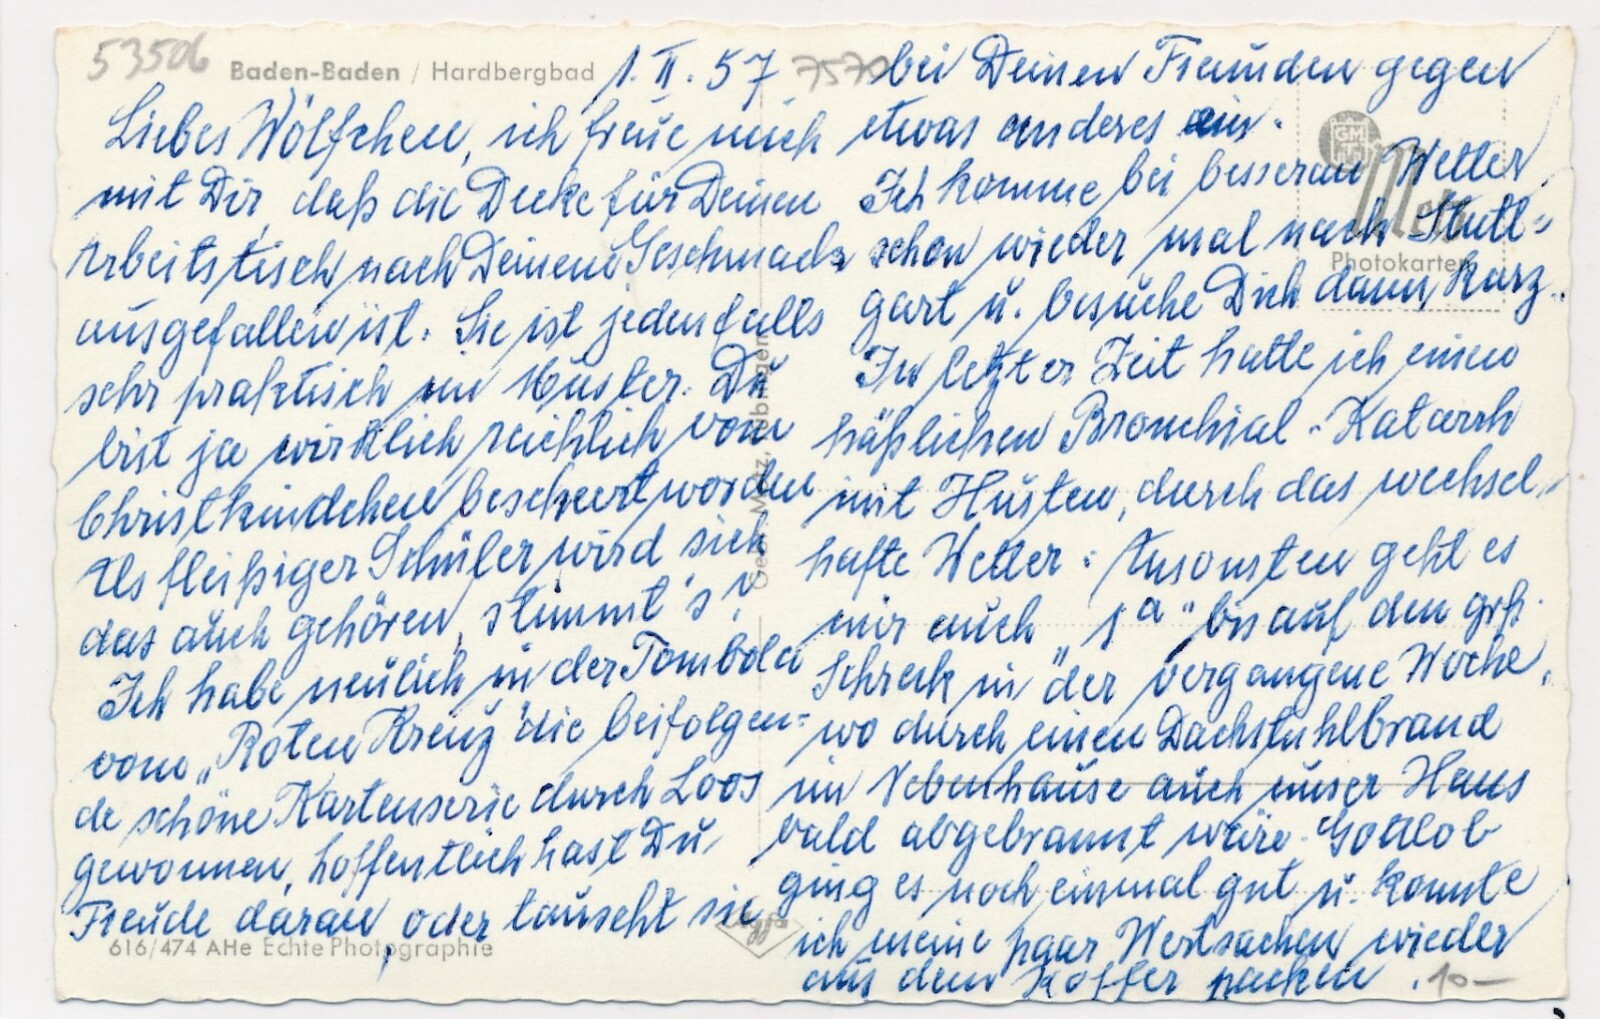 53506
Baden-Baden / Hardbergbad
1. II. 57
Liebes Wölfchen, ich freue mich
mit Dir, daß die Decke für Deinen
Arbeitstisch nach Deinem Geschmack
ausgefallen ist. Sie ist jedenfalls
sehr praktisch im Muster. Du
bist ja wirklich reichlich vom
Christkindchen beschert worden
Als fleißiger Schüler wird sich
das auch gehören, stimmt's?
Ich habe neulich in der Tombola
vom „Roten Kreuz" die beifolgen=
de schöne Kartenserie durch Loos
gewonnen, hoffentlich hast Du
Freude daran oder tauscht sie
616/474 AHe Echte Photographie
7570
bei Deinen Freunden gegen
etwas anderes ein.
Ich komme bei besserem Wetter
schon wieder mal nach Stutt=
gart u. besuche Dich dann kurz.
In letzter Zeit hatte ich einen
häßlichen Bronchial-Katarrh
mit Husten, durch das wechsel=
hafte Wetter. Ansonsten geht es
mir auch „1a" bis auf den grß.
Schreck in der vergangene Woche,
wo durch einen Dachstuhlbrand
im Nebenhause auch unser Haus
bald abgebrannt wäre. Gottlob
ging es noch einmal gut u. konnte
ich meine paar Wertsachen wieder
aus dem Koffer packen.
10-
GM
Metz
Photokarten
Gebr. Metz, Tübingen
Agfa